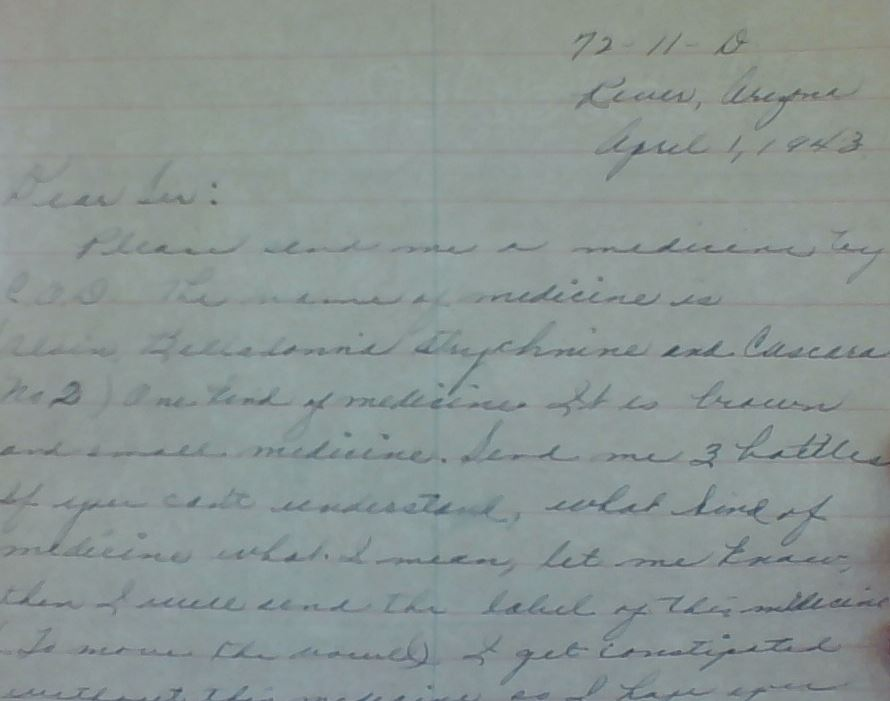 72-11-D
River, Arizona
April 1, 1943
Dear Sir:
Please send me a medicine by
C.O.D. The name of medicine is
(Aloin Belladonna Strychnine and Cascara
No 2) One kind of medicine. It is brown
and small medicine. Send me 3 bottles
If you can't understand, what kind of
medicine what I mean, let me know,
then I will send the label of this medicine
(To move the vowel) I get constipated
without this medicine so I hope you